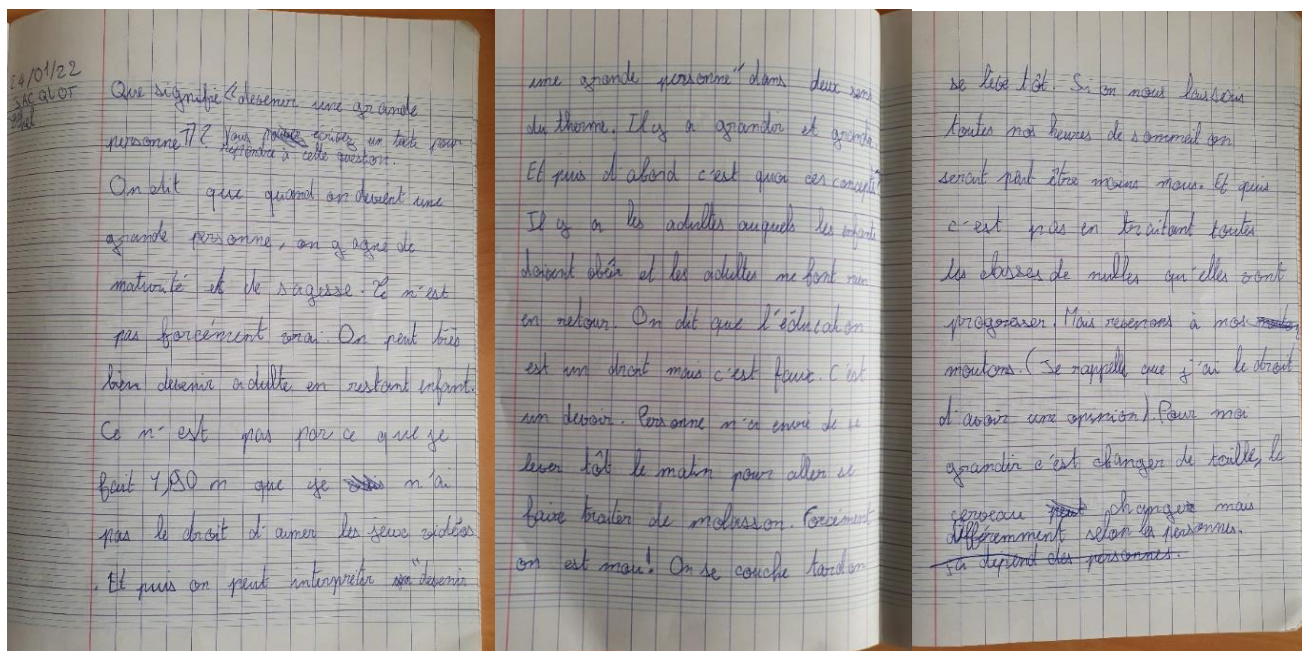 24/01/22
JACQUOT
Que signifie "devenir une grande
personne"? Vous écrivez un texte pour
répondre à cette question.
On dit que quand on devient une
grande personne, on gagne de
maturité et de sagesse. Ce n'est
pas forcément vrai. On peut très
bien devenir adulte en restant enfant.
Ce n'est pas parce que je
fait 1,80 m que je n'ai
pas le droit d'aimer les jeux vidéos
. Et puis on peut interpréter "devenir
une grande personne" dans deux sens
du therme. Il y a grandir et grandir
Et puis d'abord c'est quoi ces concepts?
Il y a les adultes auquels les enfants
doivent obéir et les adultes ne font rien
en retour. On dit que l'éducation
est un droit mais c'est faux. C'est
un devoir. Personne n'a envie de se
lever tôt le matin pour aller se
faire traiter de molasson. Forcément
on est mou! On se couche tard on
se lève tôt. Si on nous laissons
toutes nos heures de sommeil on
serait peut être moins mous. Et puis
c'est pas en traitant toutes
les classes de nulles qu'elles vont
progresser. Mais revenons à nos
moutons. (Je rappelle que j'ai le droit
d'avoir une opinion). Pour moi
grandir c'est changer de taille, le
cerveau change mais
différemment selon la personnes.
ça dépend des personnes.